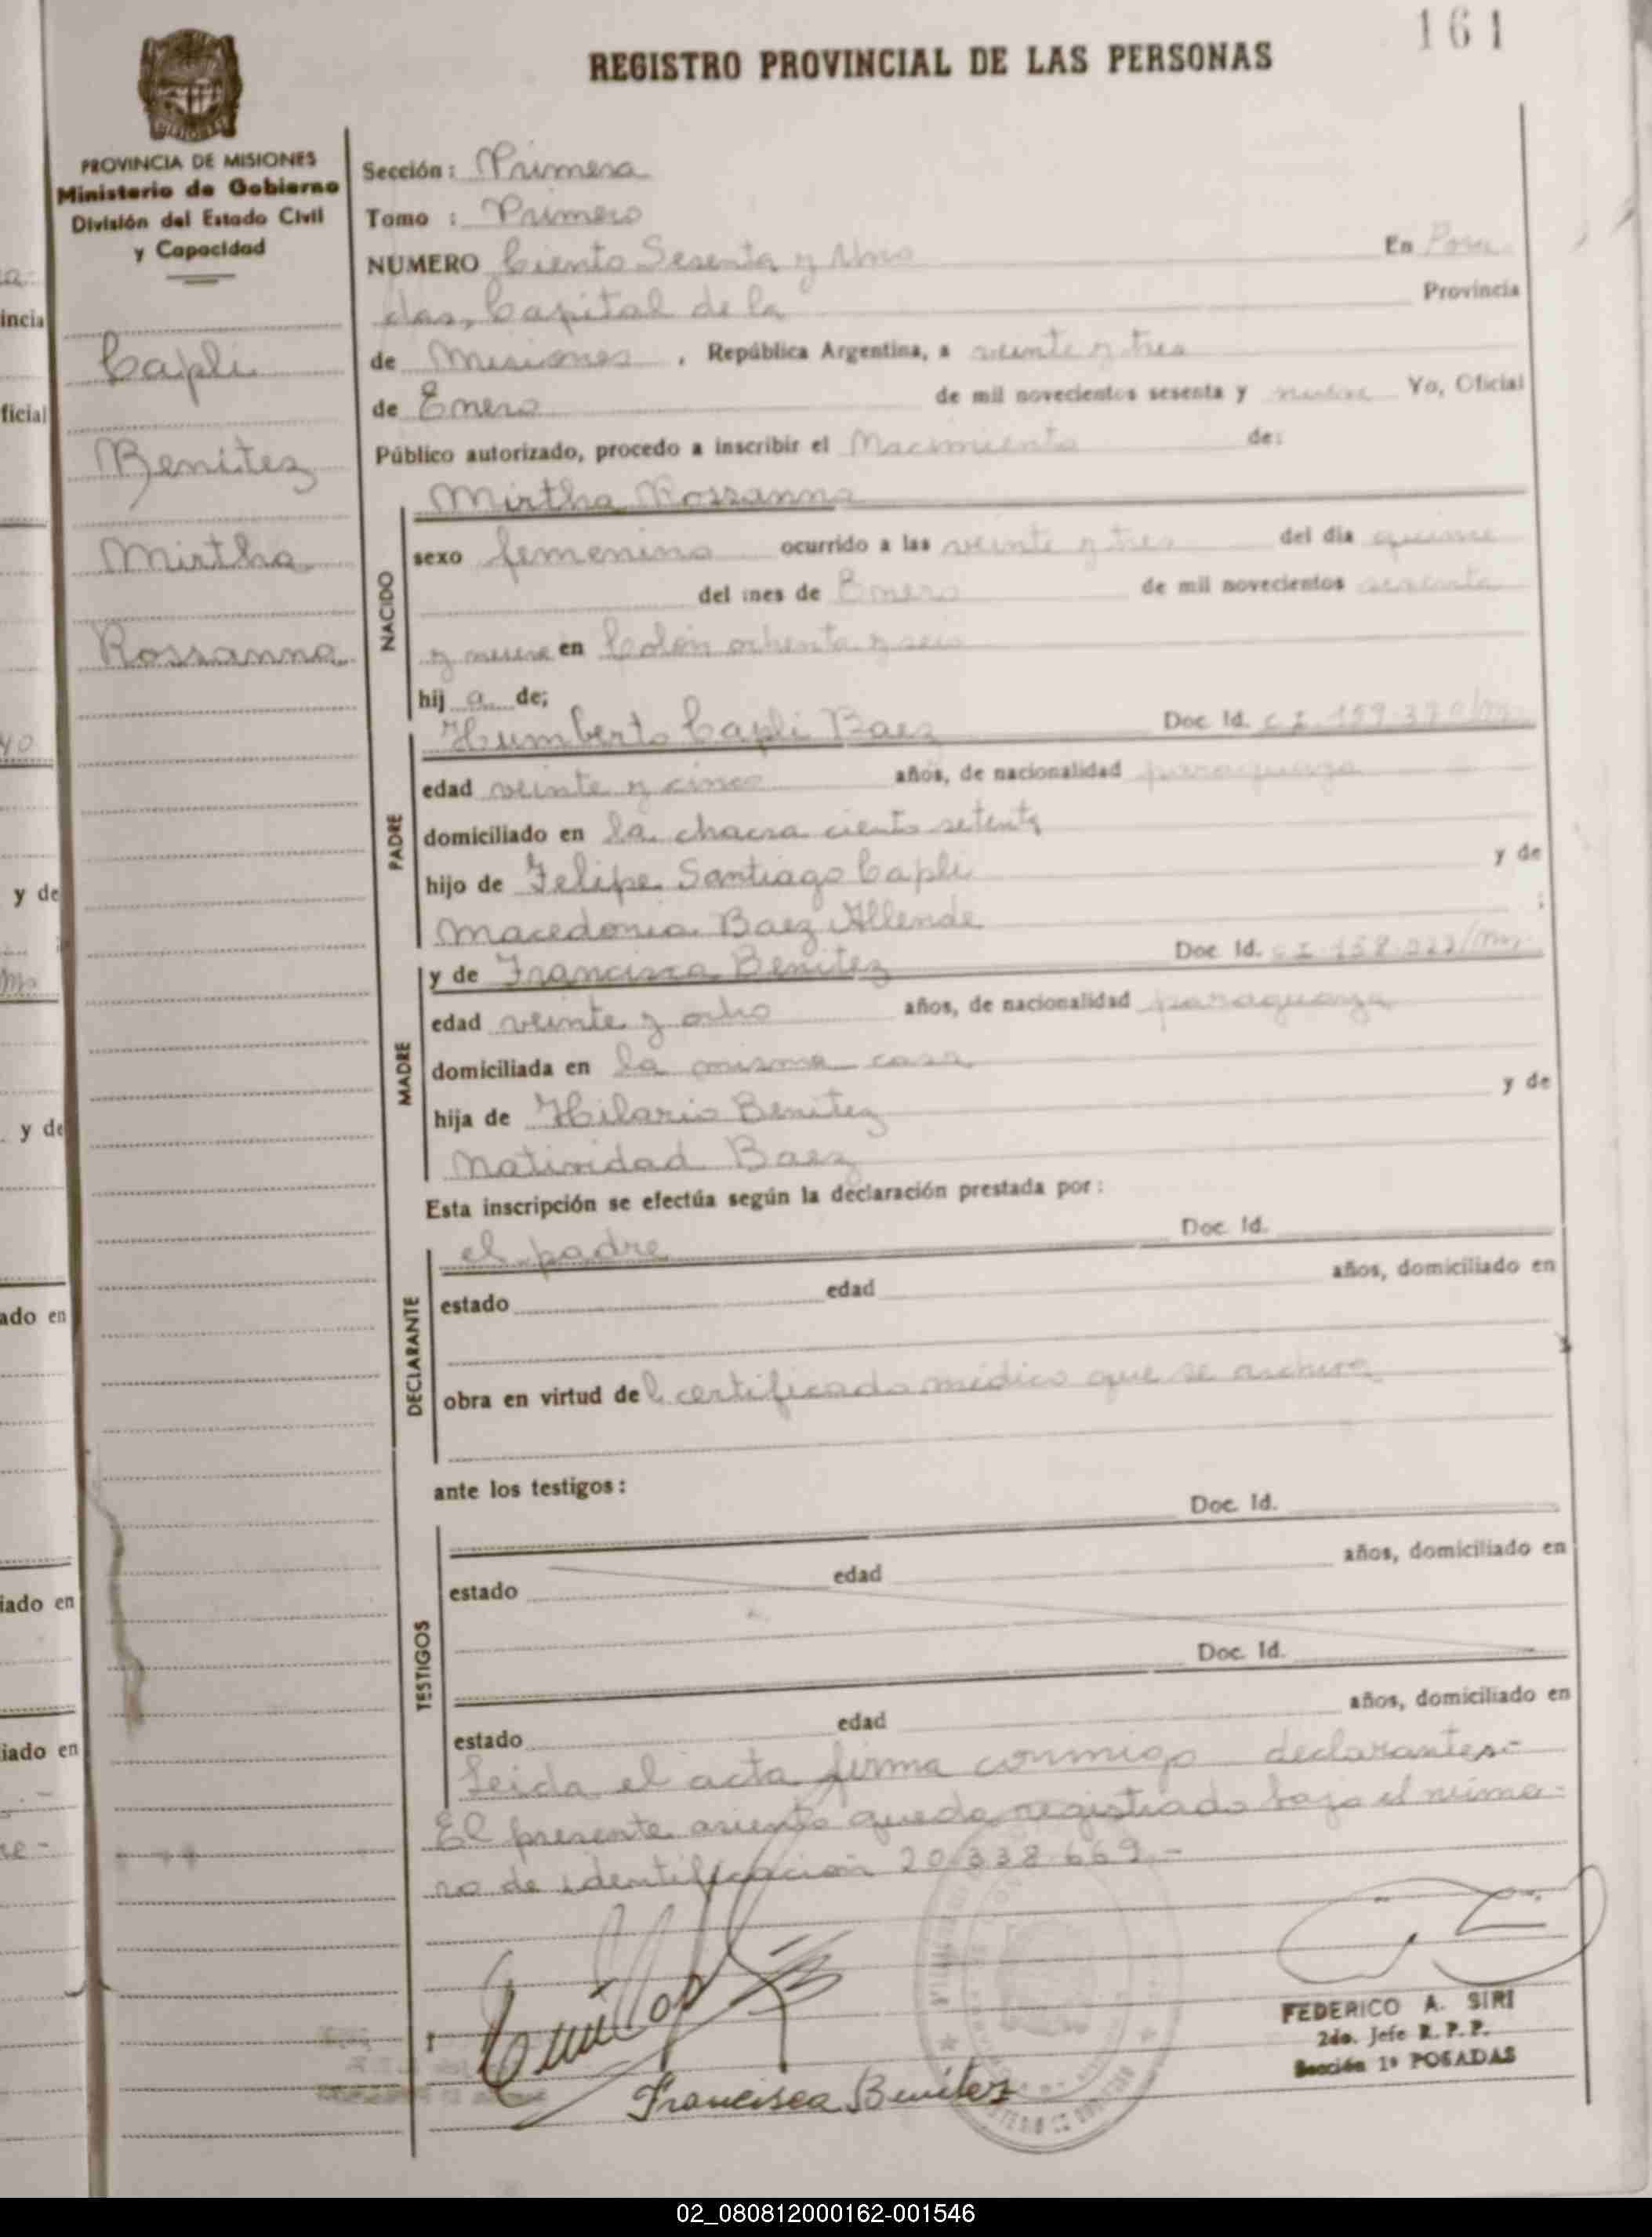 161
REGISTRO PROVINCIAL DE LAS PERSONAS
PROVINCIA DE MISIONES
Ministerio de Gobierno
División del Estado Civil
y Capacidad
Capli
Benitez
Mirtha
Rossanna
Sección: Primera
Tomo : Primero
NUMERO Ciento Sesenta y Uno En Posa
das, Capital de la Provincia
de Misiones, República Argentina, a veinte y tres
de Enero de mil novecientos sesenta y nueve Yo, Oficial
Público autorizado, procedo a inscribir el Nacimiento de:
NACIDO
Mirtha Rossanna
sexo femenino ocurrido a las veinte y tres del dia quince
del mes de Enero de mil novecientos sesenta
y nueve en Colón ochenta y seis
hij a de;
PADRE
Humberto Capli Baez Doc. Id. C I
edad veinte y cinco años, de nacionalidad paraguaya
domiciliado en la chacra ciento setenta
hijo de Felipe Santiago Capli y de
Macedonia Baez Allende ;
MADRE
y de Francisca Benitez Doc. Id. C I
edad veinte y ocho años, de nacionalidad paraguaya
domiciliada en la misma casa
hija de Hilario Benitez y de
Natividad Baez
Esta inscripción se efectúa según la declaración prestada por:
DECLARANTE
el padre Doc. Id.
estado edad años, domiciliado en
obra en virtud del certificado médico que se archiva
ante los testigos:
TESTIGOS
Doc. Id.
estado edad años, domiciliado en
Doc. Id.
estado edad años, domiciliado en
Leida el acta firma conmigo declarantes.-
El presente asiento queda registrado bajo el núme-
ro de identificación 20.338.669.-
Francisca Benitez
FEDERICO A. SIRI
2do. Jefe R. P. P.
Sección 1ª POSADAS
02_080812000162-001546